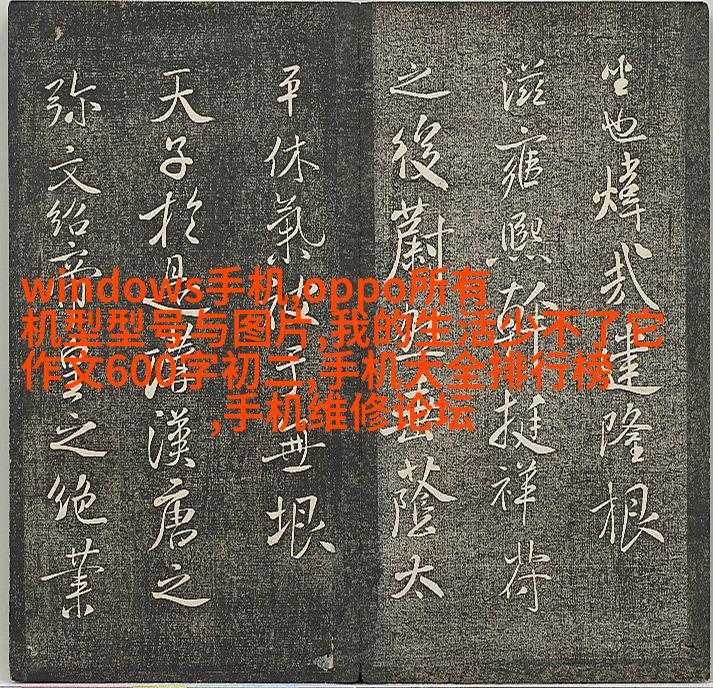 也煒哉建隆根
滋雍熙幹挺祥符
之後蔚蔭太
平休氣于無垠
天子於是講漢唐之
弥文紹帝皇之絶業
windows手机,oppo所有
机型型号与图片,我的生活少不了它
作文600字初二,手机大全排行榜
,手机维修论坛